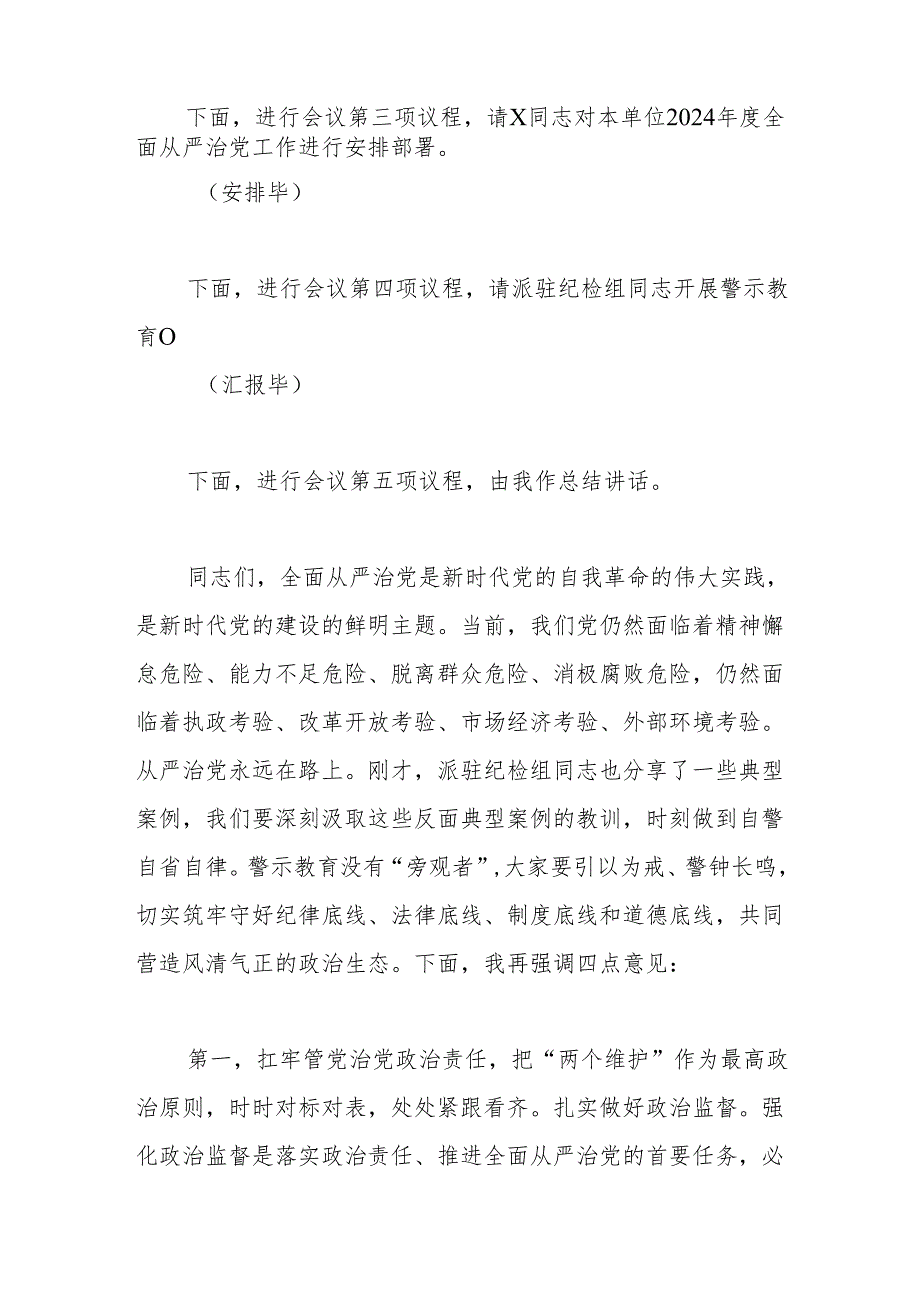 下面，进行会议第三项议程，请X同志对本单位2024年度全
面从严治党工作进行安排部署。
（安排毕）
下面，进行会议第四项议程，请派驻纪检组同志开展警示教
育O
（汇报毕）
下面，进行会议第五项议程，由我作总结讲话。
同志们，全面从严治党是新时代党的自我革命的伟大实践，
是新时代党的建设的鲜明主题。当前，我们党仍然面临着精神懈
怠危险、能力不足危险、脱离群众危险、消极腐败危险，仍然面
临着执政考验、改革开放考验、市场经济考验、外部环境考验。
从严治党永远在路上。刚才，派驻纪检组同志也分享了一些典型
案例，我们要深刻汲取这些反面典型案例的教训，时刻做到自警
自省自律。警示教育没有“旁观者”,大家要引以为戒、警钟长鸣，
切实筑牢守好纪律底线、法律底线、制度底线和道德底线，共同
营造风清气正的政治生态。下面，我再强调四点意见：
第一，扛牢管党治党政治责任，把“两个维护”作为最高政
治原则，时时对标对表，处处紧跟看齐。扎实做好政治监督。强
化政治监督是落实政治责任、推进全面从严治党的首要任务，必